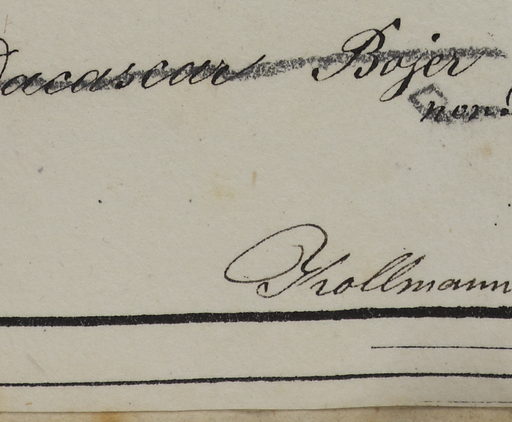 acascar Bojer
non!
Kollmann